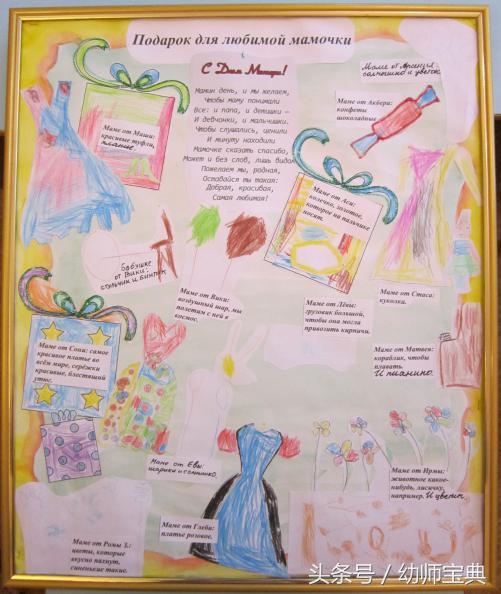 Подарок для любимой мамочки
С Днём Матери!
Мамин день, и мы желаем,
Чтобы маму понимали
Все: и папа, и детишки –
И девчонки, и мальчишки.
Чтобы слушались, ценили
И минуту находили
Мамочке сказать спасибо,
Может и без слов, лишь видом
Пожелаем мы, родная,
Оставайся ты такая:
Добрая, красивая,
Самая любимая!
Маме от Арсения:
солнышко и цветок.
Маме от Акбера:
конфеты
шоколадные.
Маме от Маши:
красивые туфли,
платье.
Маме от Аси:
колечко, золотое,
которое на пальчике
носят.
Бабушке
от Вики:
стульчик и бантик
Маме от Вики:
воздушный шар, мы
полетим с ней в
космос.
Маме от Лёвы:
грузовик большой,
чтобы она могла
привозить кирпичи.
Маме от Стаса:
куколка.
Маме от Сони: самое
красивое платье во
всём мире, серёжки
красивые, блестящий
утюг.
Маме от Матвея:
кораблик, чтобы
плавать.
И пианино.
Маме от Евы:
шарики и солнышко.
Маме от Ирмы:
животное какое-
нибудь, лисичку,
например. И цветы.
Маме от Глеба:
платье розовое.
Маме от Ромы З.:
цветы, которые
вкусно пахнут,
синенькие такие.
头条号 / 幼师宝典